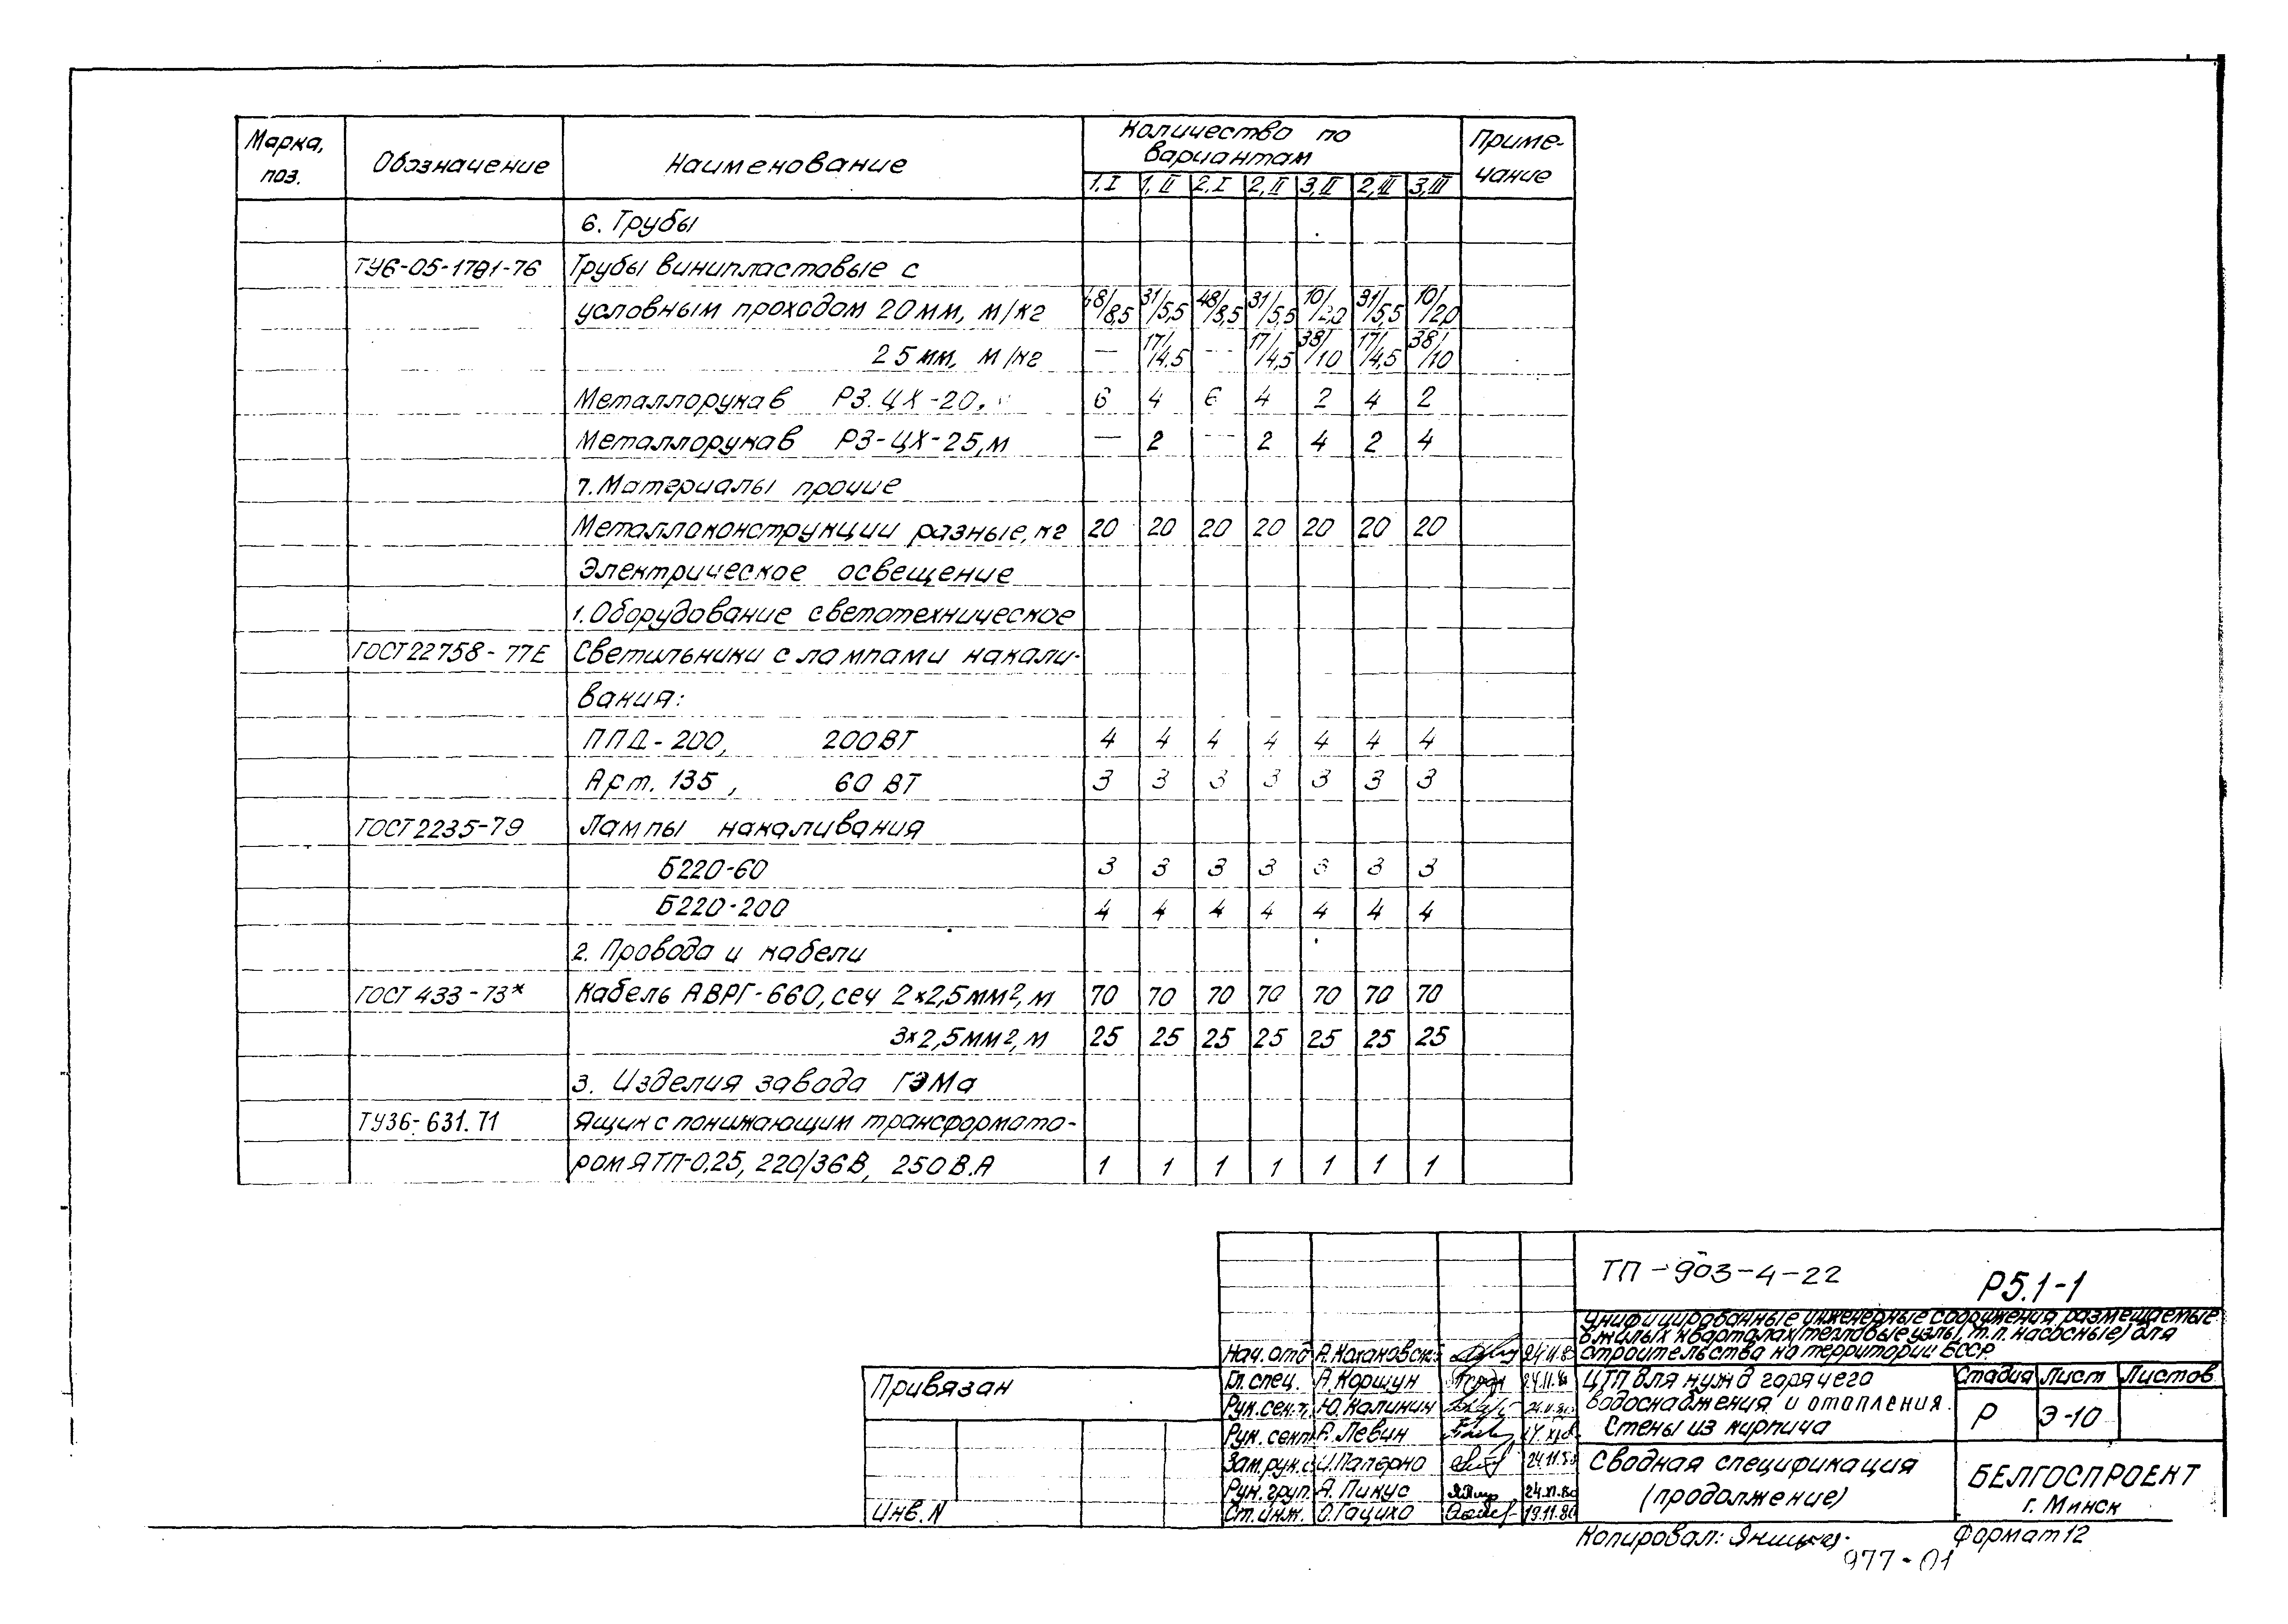 Марка, поз. Обозначение Наименование Количество по вариантам Приме-чание
1,I 1,II 2,I 2,II 3,II 2,III 3,III
6. Трубы
ТУ6-05-1791-76 Трубы винипластовые с
условным проходом 20мм, м/кг 48/8,5 31/5,5 48/8,5 31/5,5 10/2,0 31/5,5 10/2,0
25мм, м/кг — 17/4.5 — 17/4,5 38/10 17/4,5 38/10
Металлорукав РЗ.ЦХ-20, 6 4 6 4 2 4 2
Металлорукав РЗ-ЦХ-25,м — 2 — 2 4 2 4
7. Материалы прочие
Металлоконструкции разные, кг 20 20 20 20 20 20 20
Электрическое освещение
1. Оборудование светотехническое
ГОСТ 22758-77Е Светильники с лампами накали-
вания:
ППД-200, 200ВТ 4 4 4 4 4 4 4
Арт. 135, 60 ВТ 3 3 3 3 3 3 3
ГОСТ 2235-79 Лампы накаливания
Б220-60 3 3 3 3 3 3 3
Б220-200 4 4 4 4 4 4 4
2. Провода и кабели
ГОСТ 433-73* Кабель АВРГ-660, сеч 2×2,5мм², м 70 70 70 70 70 70 70
3×2,5мм², м 25 25 25 25 25 25 25
3. Изделия завода ГЭМа
ТУ36-631.71 Ящик с понижающим трансформато-
ром ЯТП-0,25, 220/36В, 250В.А 1 1 1 1 1 1 1
ТП-903-4-22 Р5.1-1
Унифицированные инженерные сооружения размещаемые
в жилых кварталах (тепловые узлы, т.п. насосные) для
строительства на территории БССР
Привязан
Инв. N
Нач. отд А. Кахановский
Гл. спец. А. Коршун
Рук. сект. Ю. Калинин
Рук. сект. А. Левин
Зам. рук. с И. Паперно
Рук. груп. А. Пикус 24.XI.80
Ст. инж. О. Гацихо 19.11.80
ЦТП для нужд горячего
водоснабжения и отопления.
Стены из кирпича
Стадия Лист Листов
Р Э-10
Сводная спецификация
(продолжение)
БЕЛГОСПРОЕКТ
г. Минск
Копировал: Формат 12
977-01